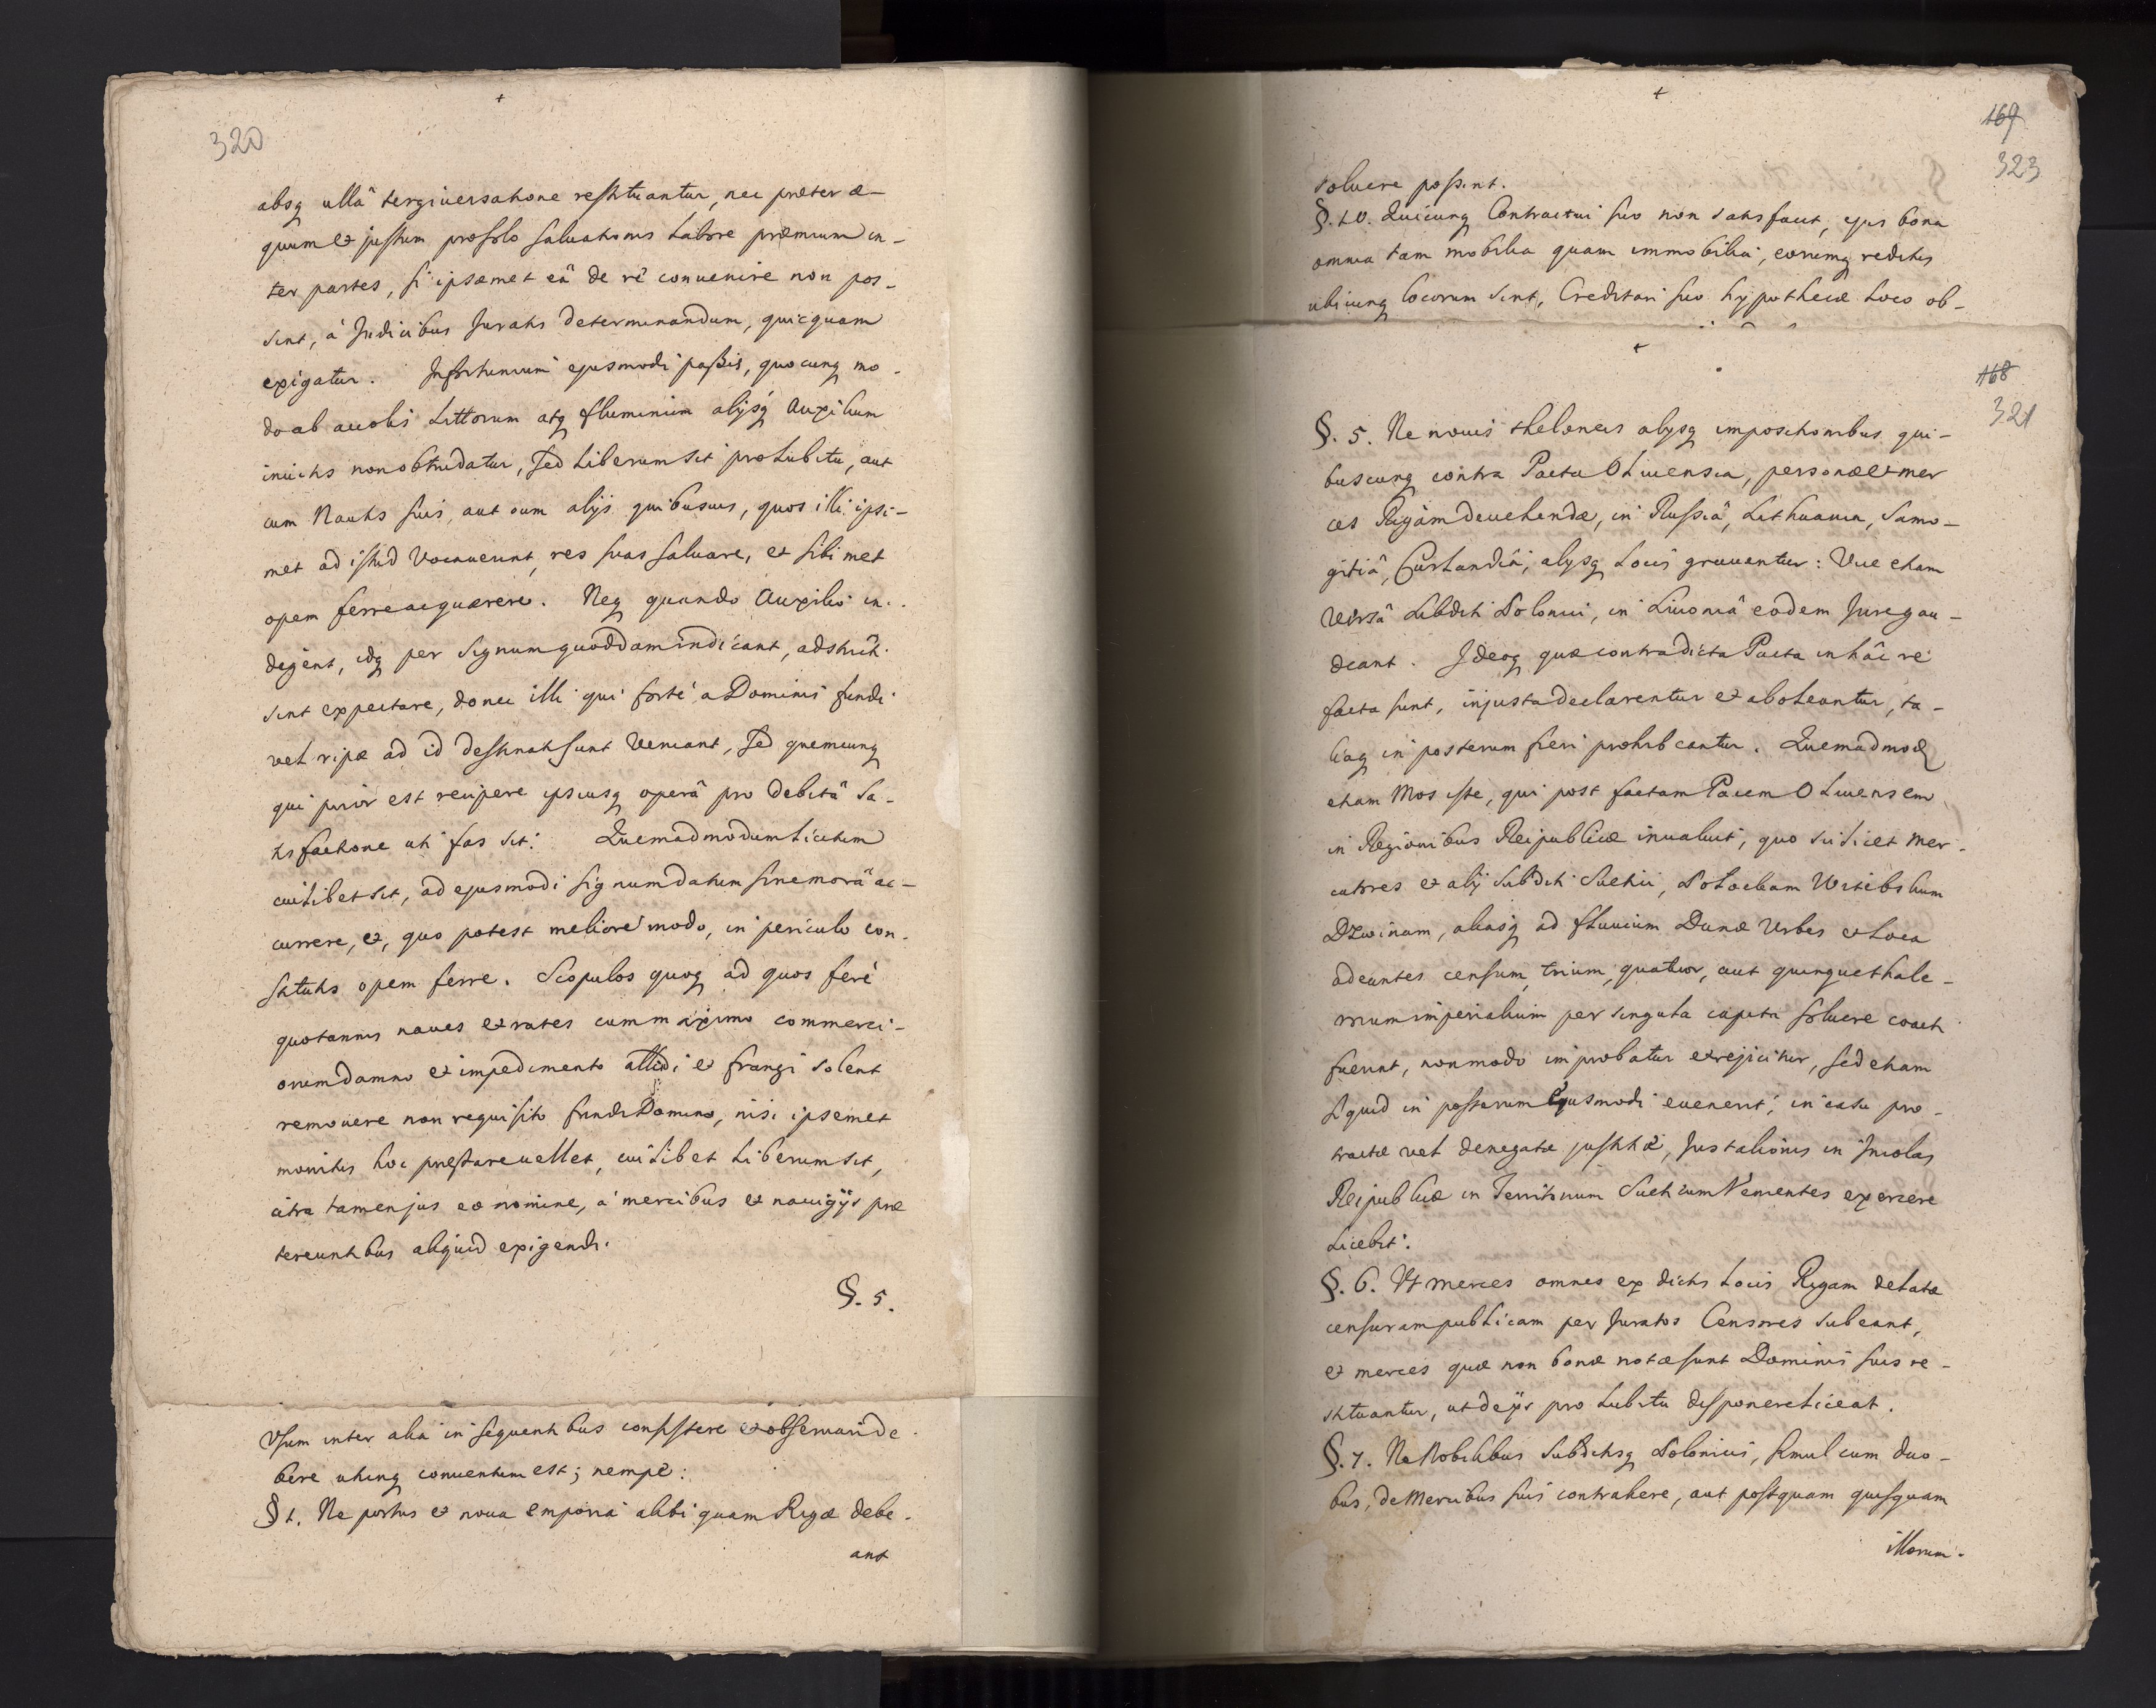 320
absq ullâ tergiuersatione restituantur, nec præter æ-
quum et justum pro solo saluationis Labore præmium in-
ter partes, si ipsæmet eâ de rê conuenire non pos-
sint, á Judicibus Juratis determinandum, quicquam
exigatur. Infortunium ejusmodi paßis, quocunq mo-
do ab accolis Littorum atq fluminum alijsq Auxilium
inuitis non obtrudatur, sed Liberum sit pro Lubitu, aut
cum Nautis suis, aut cum alijs quibusuis, quos illi ipsi-
met ad istud Vocauerint, res suas saluare, et sibimet
opem ferre ac quærere. Neq quando Auxilio in-
digent, idq per Signum quoddam indicant, adstricti
sint expectare, donec illi qui fortè a Dominis fundi
vel ripæ ad id destinati sunt Veniant, Sed quemcunq
qui prior est recipere ipsiusq operâ pro debitâ Sa-
tisfactione uti fas sit. Quemadmodum Licitum
cuilibet sit, ad ejusmodi signum datum sine morâ ac-
currere, et, quo potest meliore modo, in periculo con-
stitutis opem ferre. Scopulos quoq ad quos ferè
quotannis naues et rates cum maximo commerci-
orum damno et impedimento allidi et frangi solent
remouere non requisito fundi Domino, nisi ipsemet
monitus hoc præstare uellet, cuilibet Liberum sit,
citra tamen jus eo nomine, á mercibus et nauigijs præ
tereuntibus aliquid exigendi.
§. 5.
Vsum inter alia in sequentibus consistere et obseruari de
bere utrinq conuentum est; nempe:
§ 1. Ne portus et noua emporia alibi quam Rigæ debe-
ant
169
323
soluere possint.
§. 10. Quicunq Contractui suo non satisfacit, ejus bona
omnia tam mobilia quam immobilia, eorumq reditus
ubicunq locorum sint, Creditori suo hypothecæ Loco ob-
168
321
§. 5. Ne nouis theloneis alijsq impositionibus qui-
buscunq contra Pacta Oliuensia, personæ et mer
ces Rigam deuehendæ, in Russiâ, Lithuania, Samo-
gitiâ, Curlandiâ, alijsq Locis grauentur: Vice etiam
Versâ Subditi Polonici, in Liuoniâ eodem Jure gau-
deant. Ideoq quæ contra dicta Pacta in hâc rê
facta sunt, injusta declarentur et aboleantur, ta-
liaq in posterum fieri prohibeantur. Quemadmod
etiam Mos iste, qui post factam Pacem Oliuensem
in Regionibus Reipublicæ inualuit, quo scilicet mer-
catores et alij Subditi Suetici, Polockam Witebskum
Dzwinam, aliasq ad fluuium Dunæ Urbes et Loca
adeuntes censum, trium, quatuor, aut quinque thale-
rorum imperialium per singula capita soluere coacti
fuerint, non modo improbatur et rejicitur, sed etiam
si quid in posterum Ejusmodi euenerit, in casu pro-
tractæ vel denegatæ justitiæ, Jus talionis in Incolas
Reipublicæ in Territorium Sueticum Venientes exercere
Licebit.
§. 6. Vt merces omnes ex dictis Locis Rigam delatæ
censuram publicam per Juratos Censores subeant,
et merces quæ non bonæ notæ sunt Dominis suis re-
stituantur, ut de ijs pro Lubitu disponere Liceat.
§. 7. Ne Nobilibus Subditisq Polonicis, simul cum duo-
bus, de Mercibus suis contrahere, aut postquam quisquam
illorum-